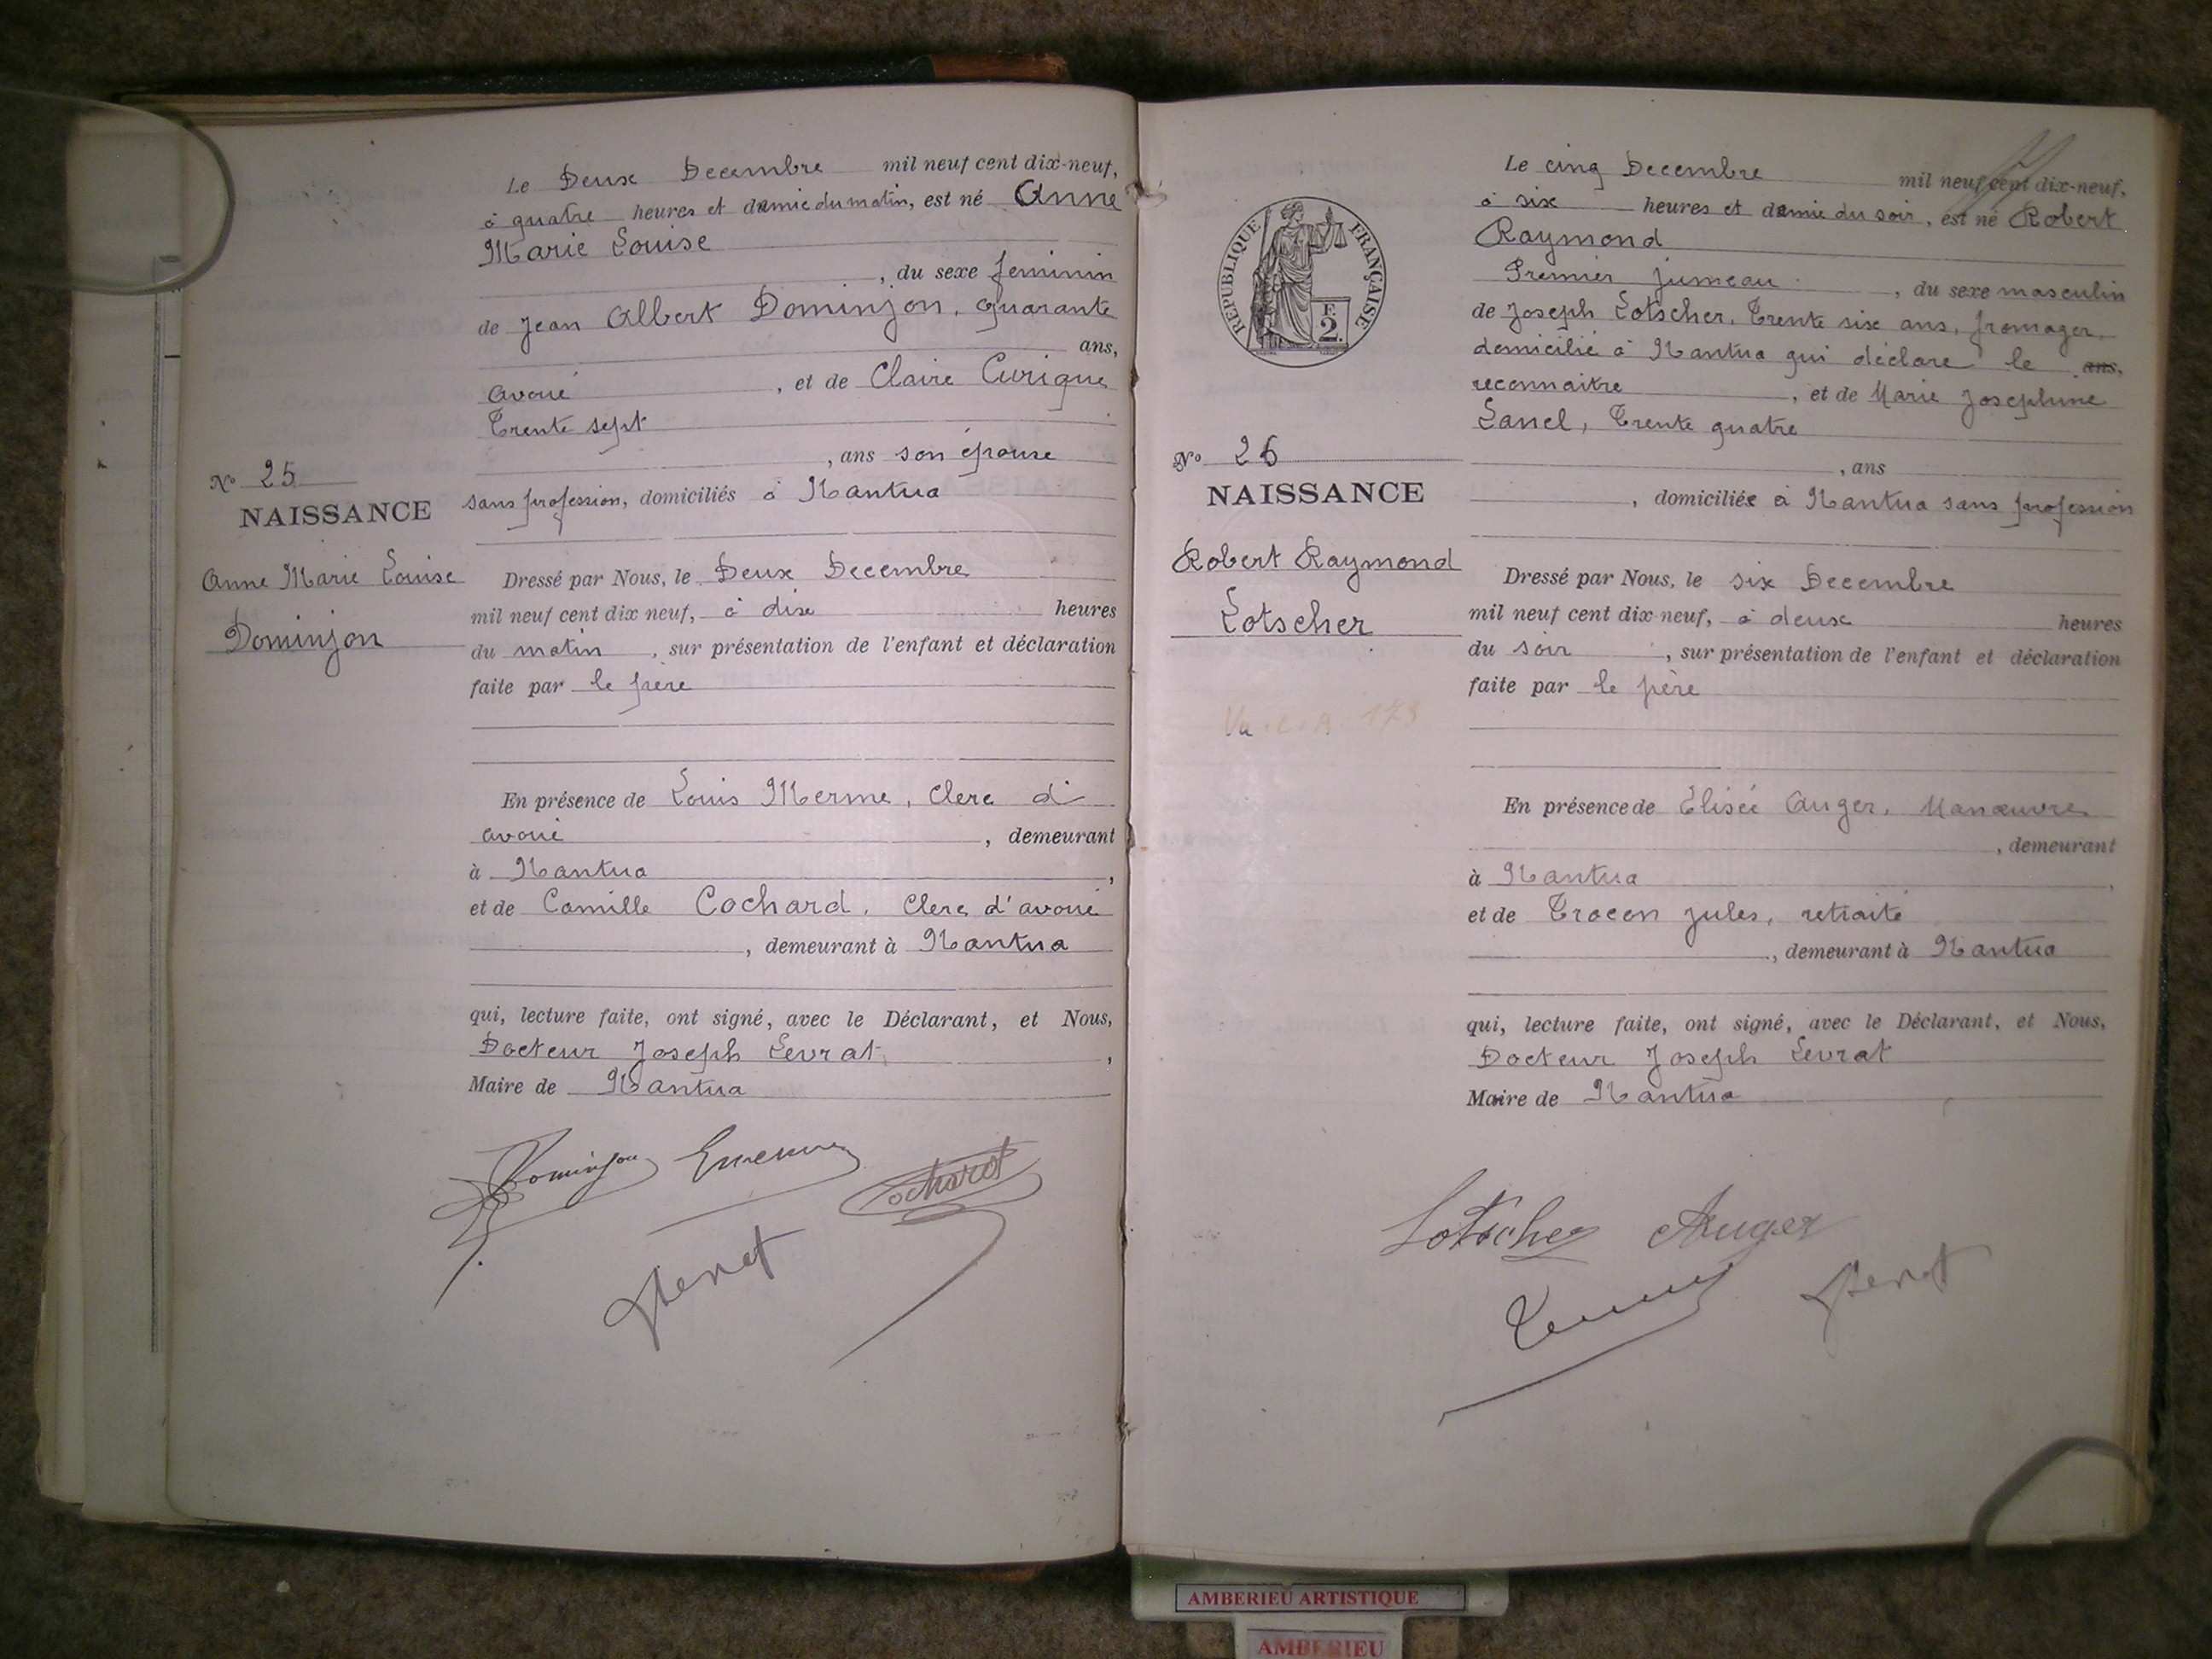 Le Deux Decembre mil neuf cent dix-neuf,
à quatre heures et demie du matin, est né Anne
Marie Louise
, du sexe feminin
de Jean Albert Dominjon, quarante
ans,
avoué , et de Claire Curigue
Trente sept
, ans son épouse
sans profession, domiciliés à Nantua
No 25
NAISSANCE
Anne Marie Louise
Dominjon
Dressé par Nous, le Deux Decembre
mil neuf cent dix neuf, à dix heures
du matin , sur présentation de l'enfant et déclaration
faite par le père
En présence de Louis Merme, Clerc d'
avoué , demeurant
à Nantua ,
et de Camille Cochard, Clerc d'avoué
, demeurant à Nantua
qui, lecture faite, ont signé, avec le Déclarant, et Nous,
Docteur Joseph Levrat ,
Maire de Nantua
Dominjon
Cochard
Le cinq Decembre mil neuf cent dix-neuf,
à six heures et demie du soir, est né Robert
Raymond
Premier jumeau , du sexe masculin
de Joseph Lotscher, Trente six ans, fromager,
domicilié à Nantua qui déclare le ans,
reconnaitre , et de Marie Josephine
Lanel, Trente quatre
, ans
, domiciliée à Nantua sans profession
RÉPUBLIQUE FRANÇAISE
F.
2.
No 26
NAISSANCE
Robert Raymond
Lotscher
Dressé par Nous, le six Decembre
mil neuf cent dix neuf, à deux heures
du soir , sur présentation de l'enfant et déclaration
faite par le père
En présence de Elisée Auger, Manœuvre
, demeurant
à Nantua ,
et de Trocon Jules, retraité
, demeurant à Nantua
qui, lecture faite, ont signé, avec le Déclarant, et Nous,
Docteur Joseph Levrat
Maire de Nantua
Lotscher Auger
AMBERIEU ARTISTIQUE
AMBERIEU